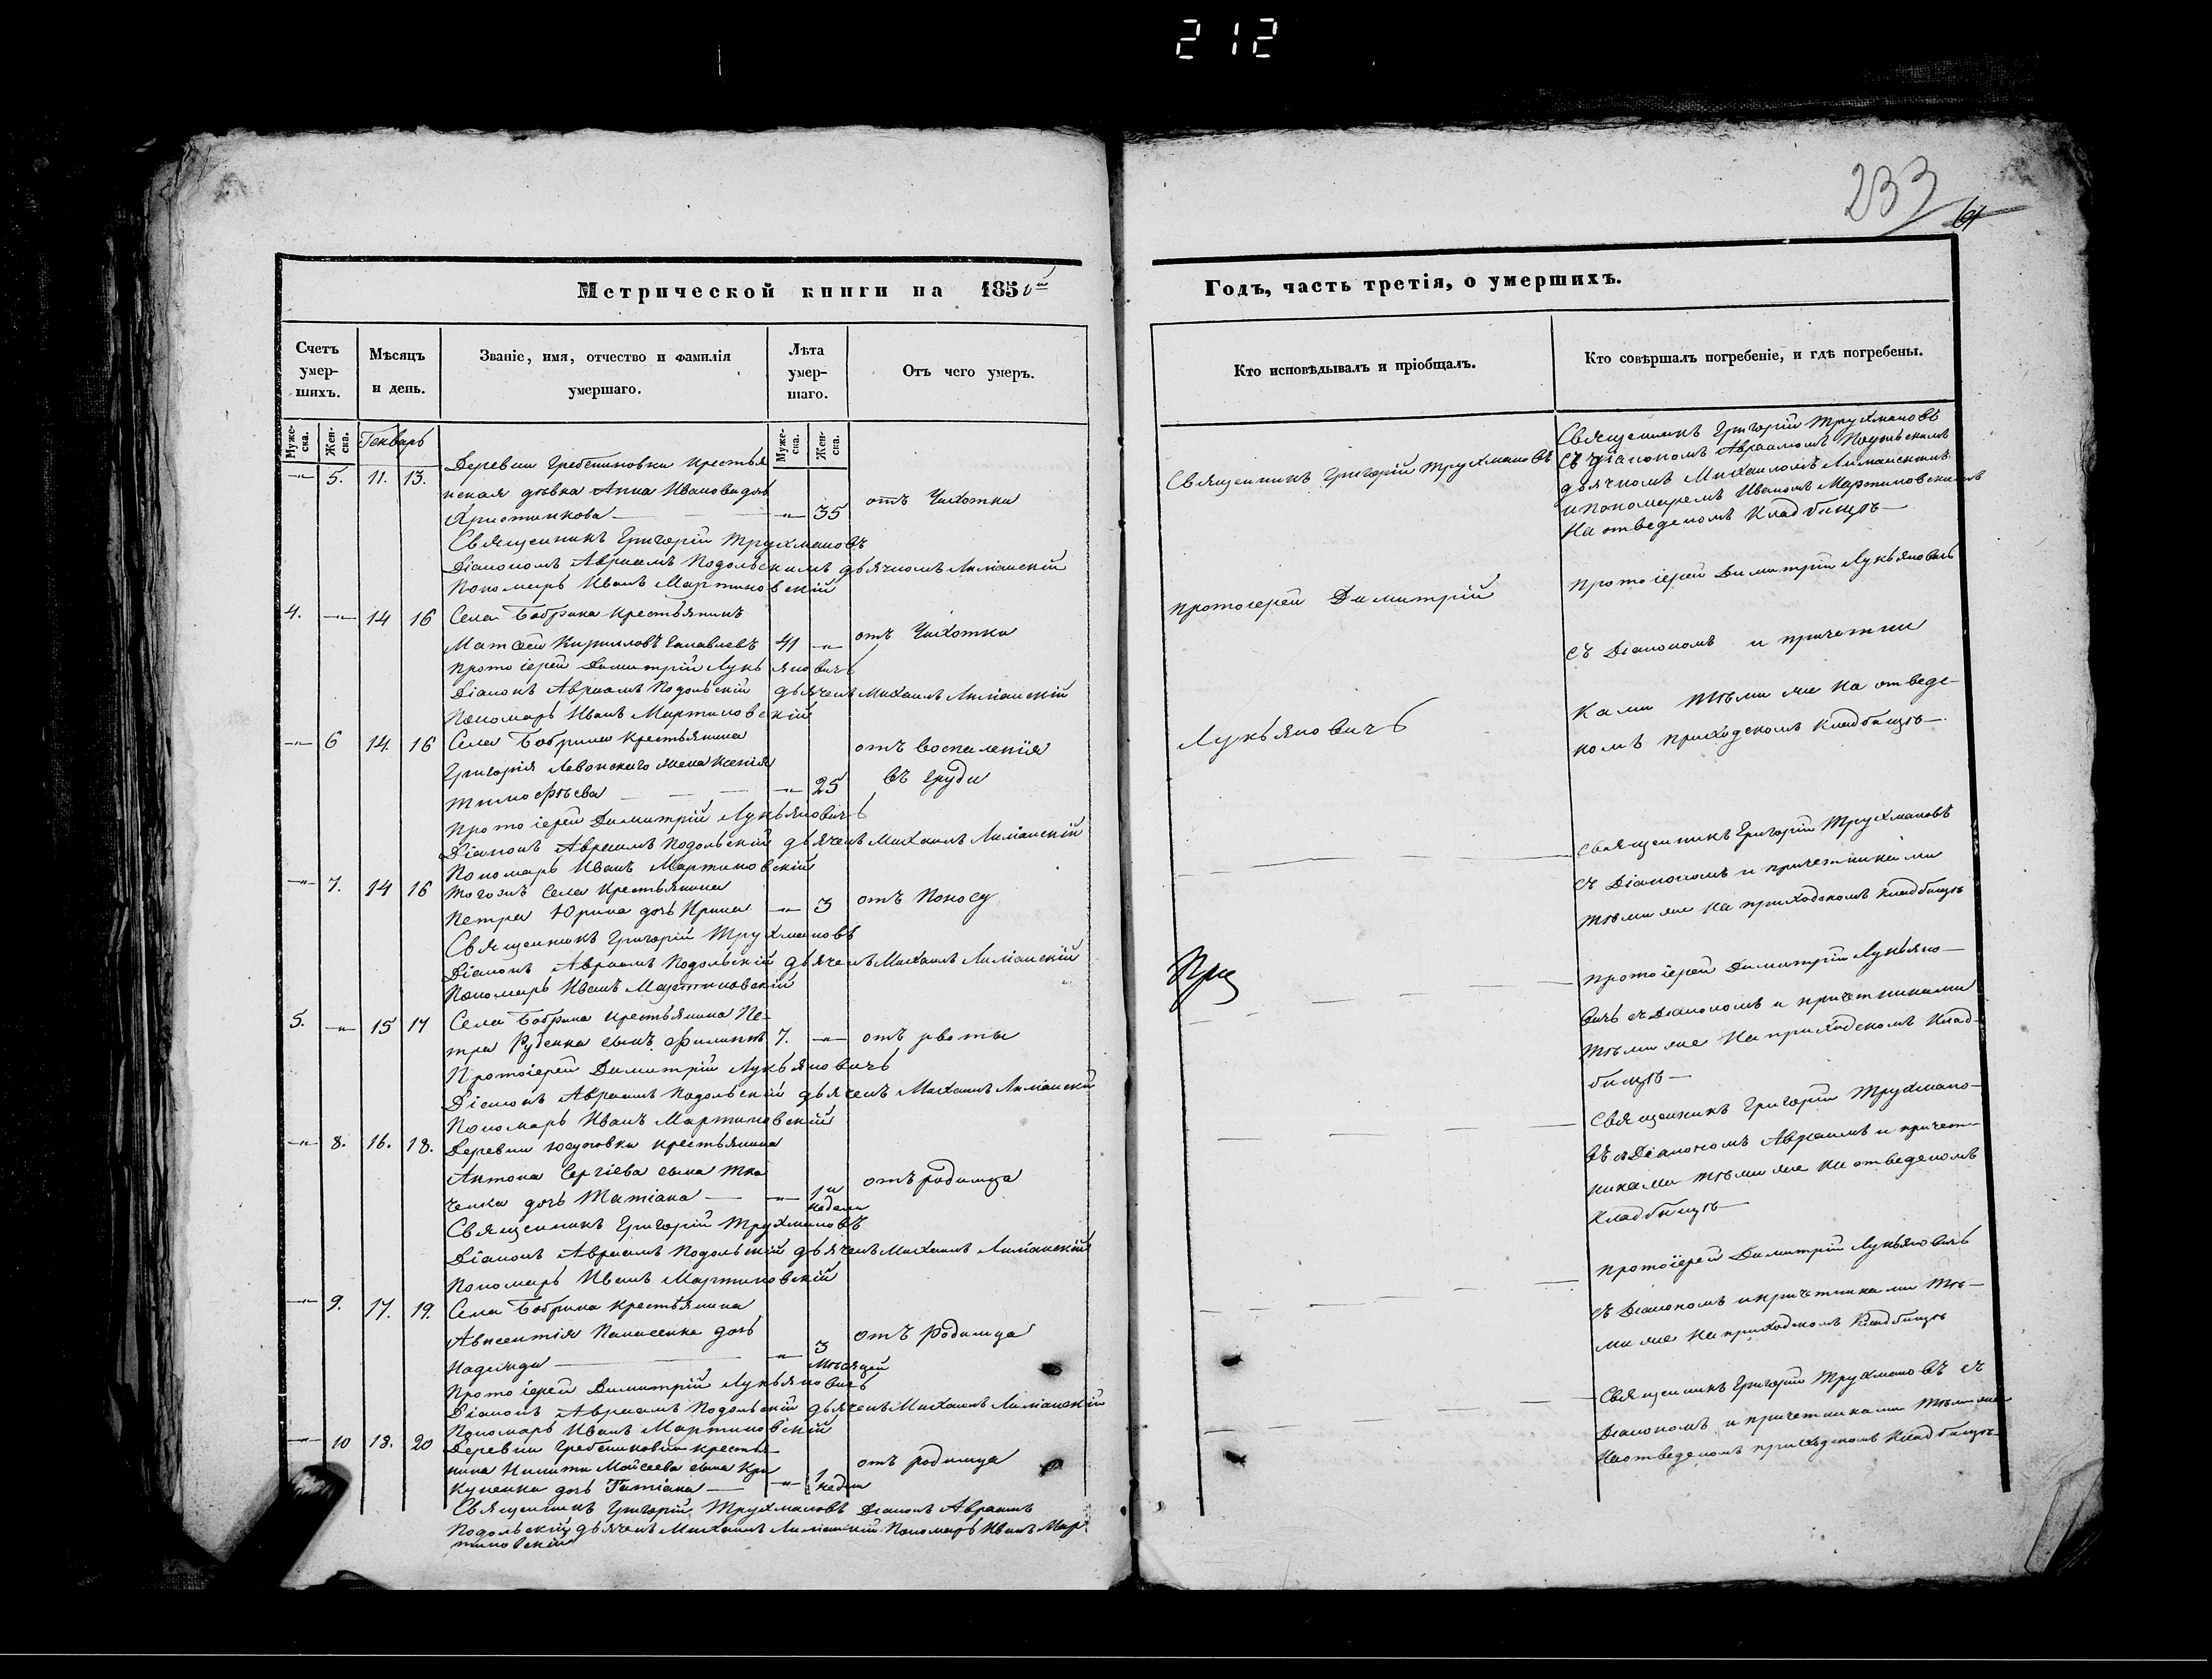 212
233
61
Метрической книги на 185
Счетъ умер-шихъ.
Мѣсяцъ и день.
Званіе, имя, отчество и фамилія умершаго.
Лѣта умер-шаго.
Отъ чего умеръ.
Муже-ска.
Жен-ска.
Генварь
Муже-ска.
Жен-ска.
5. 11. 13.
Деревни Гребенниковки крестья
нская дѣвка Анна Иванова дочь
35 отъ Чихотки
Священникъ Григорій Трухмановъ
Діакономъ Авраамъ Подольскимъ дьячкомъ Лиманскій
Пономарь Иванъ Мартиновскій
4. 14 16 Села Бобрика крестьянинъ
Матвей Кирилловъ 41 отъ Чихотки
Протоіерей Димитрій Лукьяновичъ
Діаконъ Авраамъ Подольскій дьячекъ Михаилъ Лиманскій
Пономарь Иванъ Мартиновскій
6 14. 16 Села Бобрика крестьянина
Григорія Левонскаго жена Ксенія отъ воспаленія
Тимофѣева 25 въ груди
Протоіерей Димитрій Лукьяновичъ
Діаконъ Авраамъ Подольскій дьячекъ Михаилъ Лиманскій
Пономарь Иванъ Мартиновскій
7. 14 16 Тогожъ Села Крестьянина
Петра Юрина дочь Ирина 3 отъ Поносу
Священникъ Григорій Трухмановъ
Діаконъ Авраамъ Подольскій дьячекъ Михаилъ Лиманскій
Пономарь Иванъ Мартиновскій
5. 15 17 Села Бобрика крестьянина Пе-
тра Руденка сынъ Филиппъ 7. отъ рвоты
Протоіерей Димитрій Лукьяновичъ
Діаконъ Авраамъ Подольскій дьячекъ Михаилъ Лиманскій
Пономарь Иванъ Мартиновскій
8. 16. 18. Деревни Юсуповки крестьянина
Антона Сергіева сына Тка
ченка дочь Татіана 1 недели отъ родимца
Священникъ Григорій Трухмановъ
Діаконъ Авраамъ Подольскій дьячекъ Михаилъ Лиманскій
Пономарь Иванъ Мартиновскій
9. 17. 19. Села Бобрика крестьянина
Авксентія Панасенка дочь отъ Родимца
Надежда 3 Мѣсяцей
Протоіерей Димитрій Лукьяновичъ
Діаконъ Авраамъ Подольскій дьячекъ Михаилъ Лиманскій
Пономарь Иванъ Мартиновскій
10 18. 20 Деревни Гребенниковки крестья-
нина Никиты Мойсеева сына Кри отъ родимца
купенка дочь Татіана 1 недели
Священникъ Григорій Трухмановъ Діаконъ Авраамъ
Подольскій дьячекъ Михаилъ Лиманскій Пономарь Иванъ Мар
тиновскій
Годъ, часть третія, о умершихъ.
Кто исповѣдывалъ и пріобщалъ.
Кто совѣршалъ погребеніе, и гдѣ погребены.
Священникъ Григорій Трухмановъ
Священникъ Григорій Трухмановъ
Съ діакономъ Авраамомъ Подольскимъ
дьячкомъ Михаиломъ Лиманскимъ
и пономаремъ Иваномъ Мартиновскимъ
На отведеномъ Кладбищѣ
протоіерей Димитрій
Лукьяновичъ
Протоіерей Димитрій Лукьяновичъ
съ Діакономъ и причетни
ками тѣми же На отведе-
номъ приходскомъ кладбищѣ
Священникъ Григорій Трухмановъ
съ Діакономъ и причетниками
тѣми же на приходскомъ кладбищѣ
протоіерей Димитрій Лукьяно-
вичъ съ Діакономъ и причетниками
тѣми же На приходскомъ Клад-
бищѣ
Священникъ Григорій Трухмано-
въ съ Діакономъ Авраамъ и причет-
никами тѣми же На отведеномъ
Кладбищѣ
протоіерей Димитрій Лукьяновичъ
съ Діакономъ и причетниками Тѣ-
ми же На приходскомъ Кладбищѣ
Священникъ Григорій Трухмановъ съ
Діакономъ и причетниками тѣми же
На отведеномъ приходскомъ Кладбищѣ